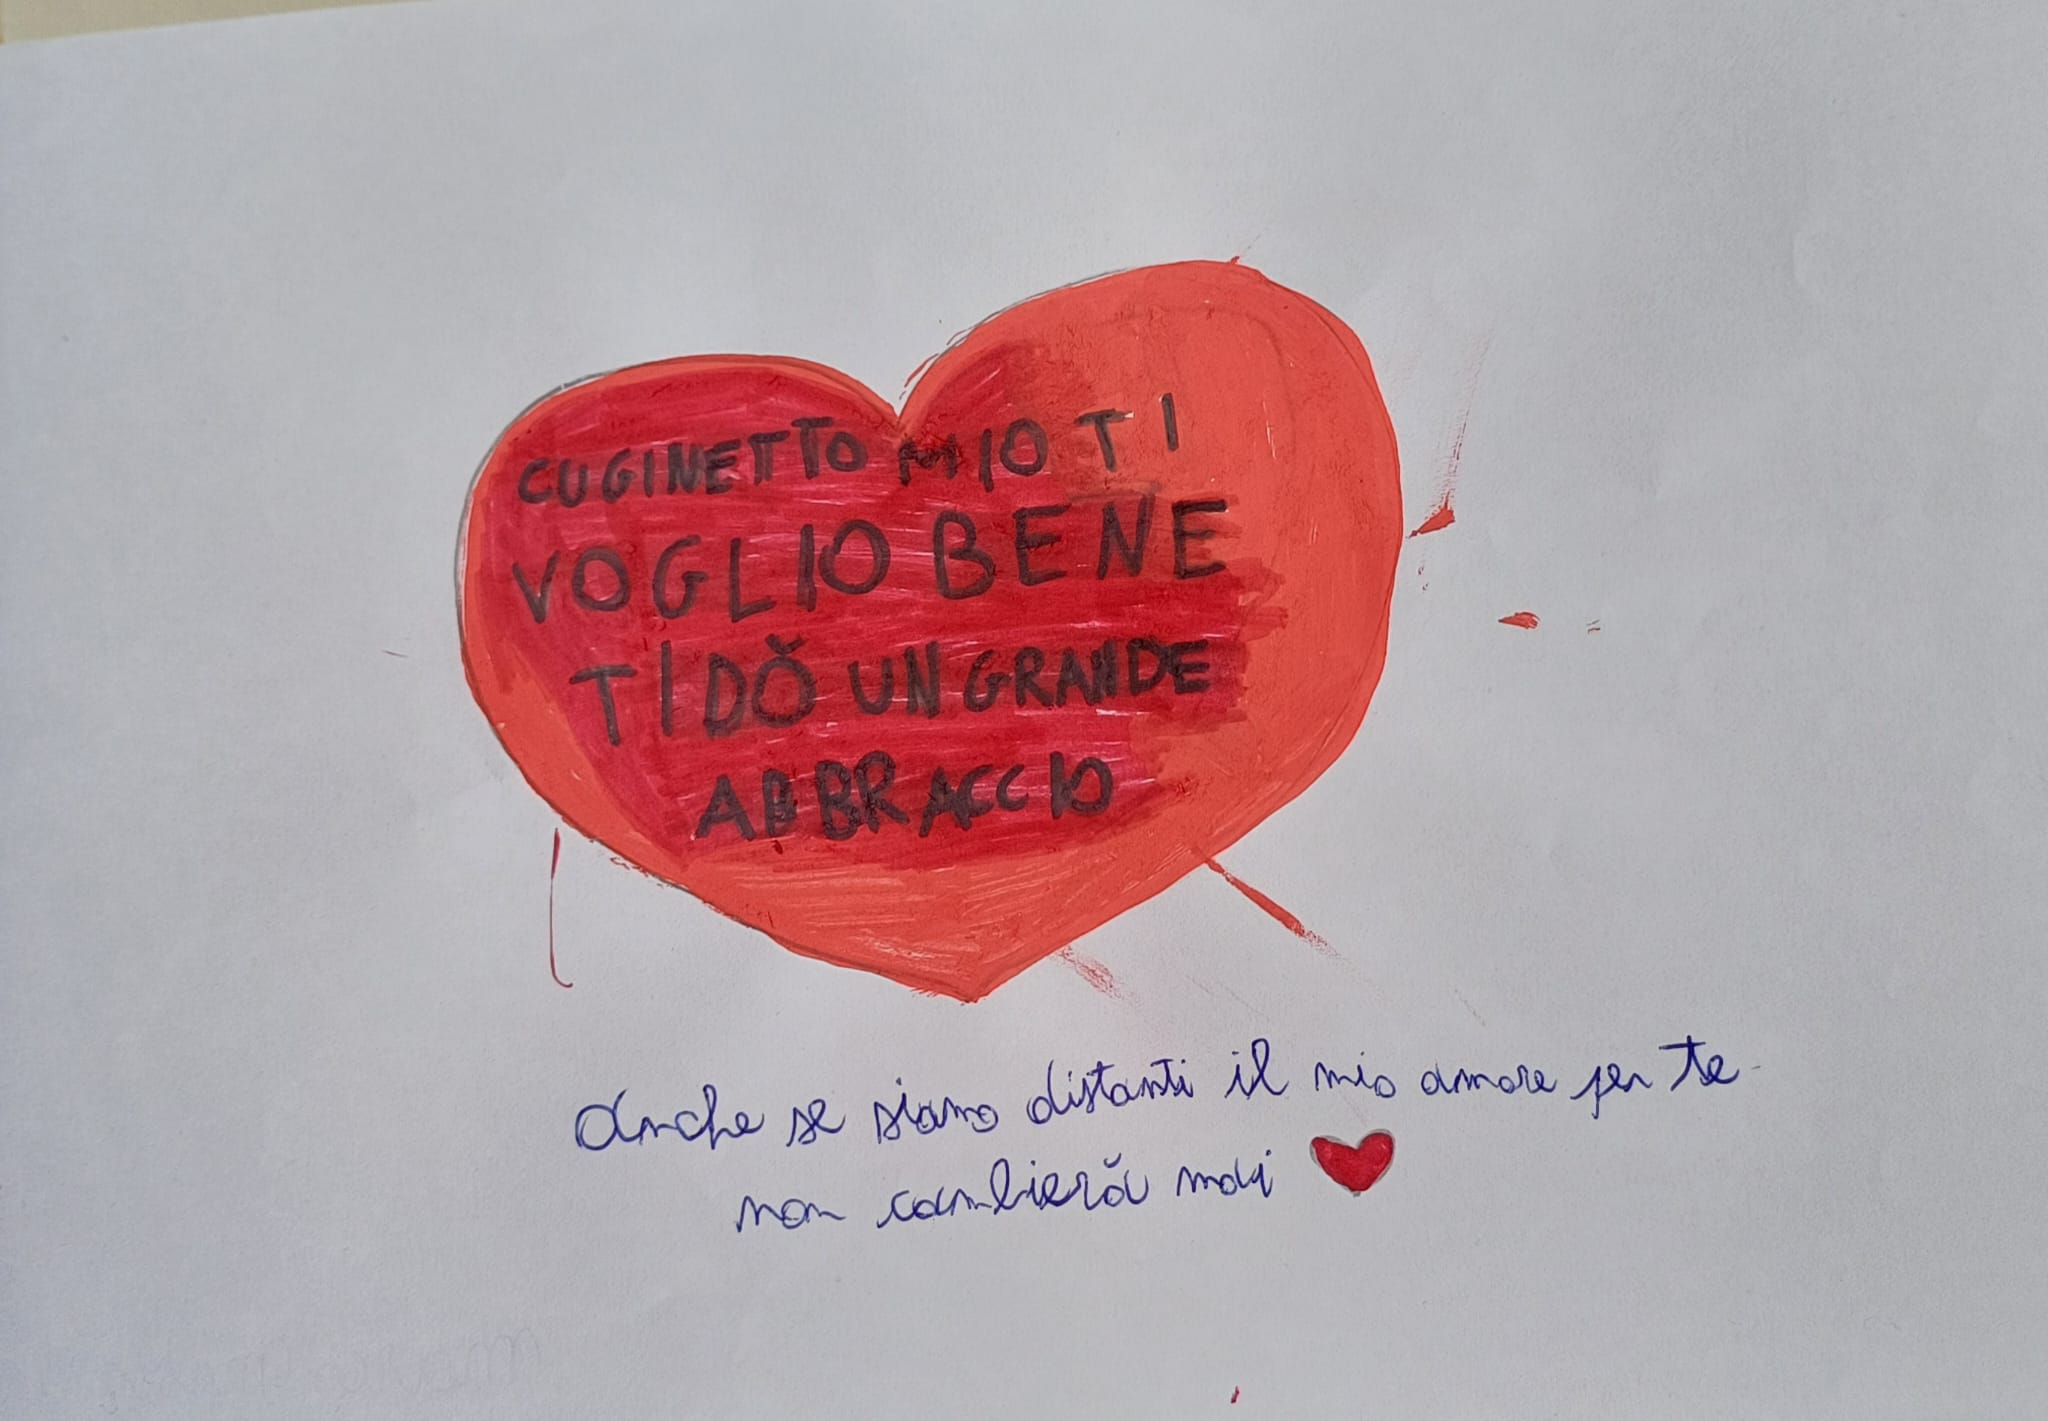 CUGINETTO MIO TI
VOGLIO BENE
TI DŎ UN GRANDE
ABBRACCIO
Anche se siamo distanti il mio amore per te
non cambieră mai